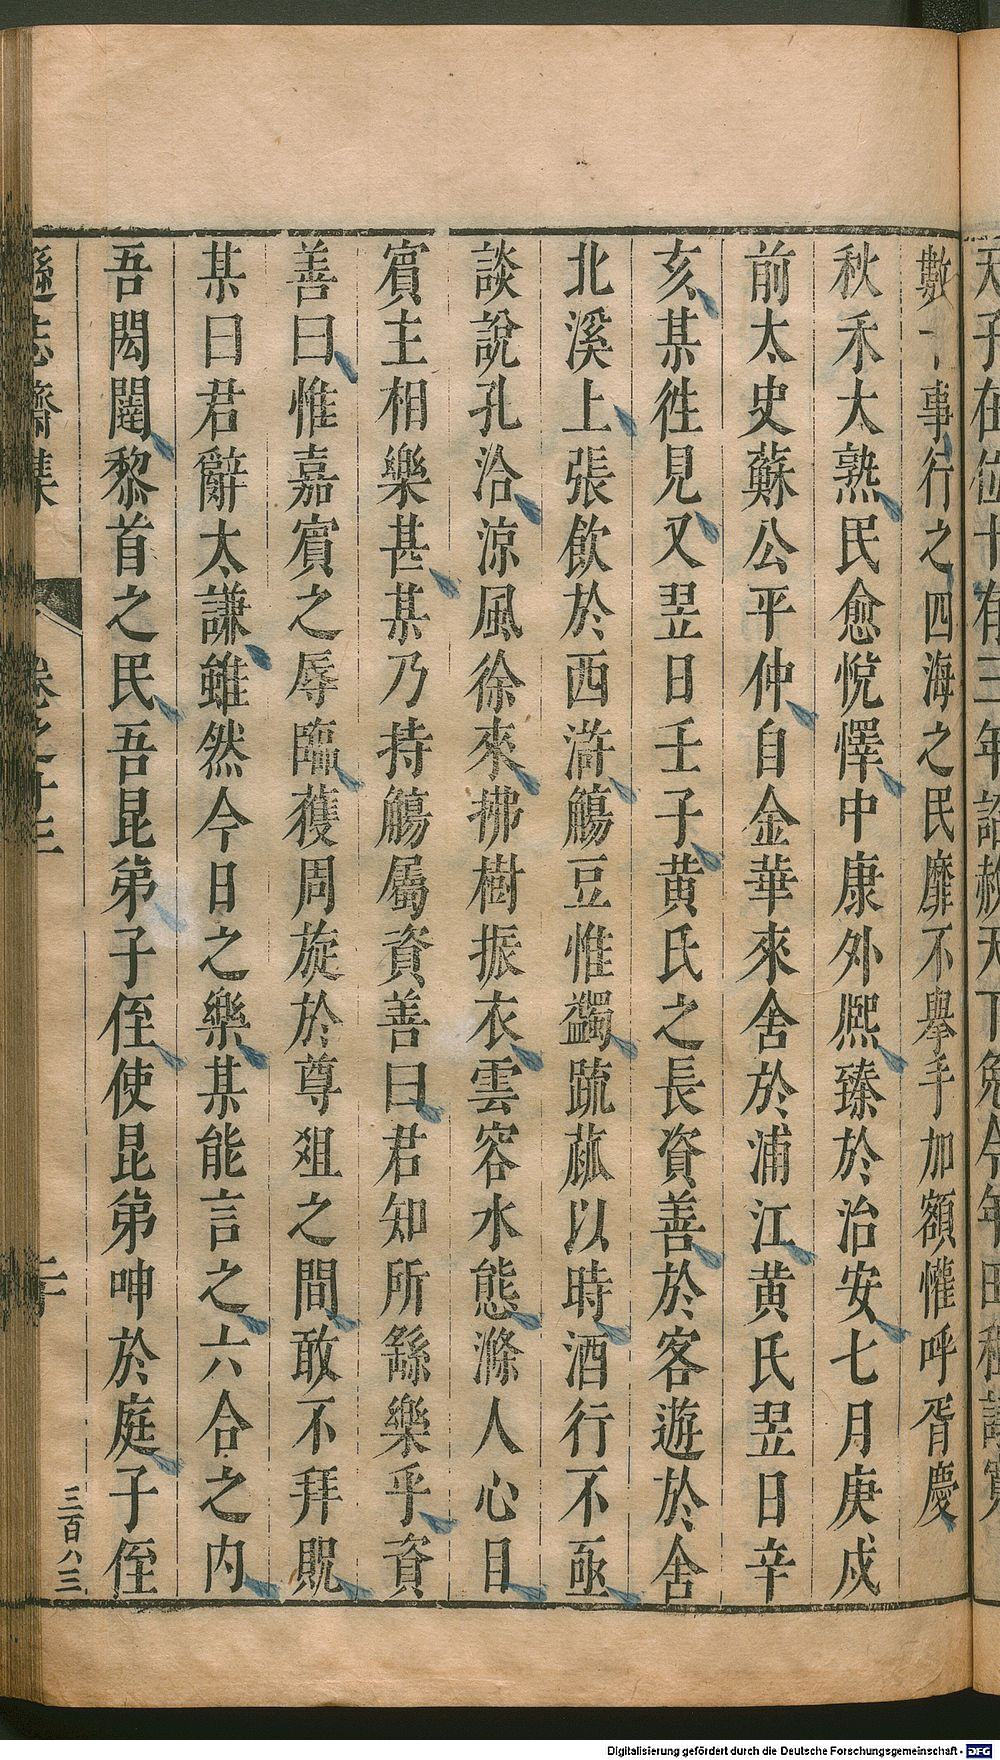 數十事行之四海之民靡不舉手加額懽呼胥慶
秋禾大熟民愈悅懌中康外熙臻於治安七月庚戌
前太史蘇公平仲自金華來舍於浦江黄氏翌日辛
亥某徃見又翌日壬子黄氏之長資善於客遊於舍
北溪上張飲於西滸觴豆惟蠲蔬苽以時酒行不亟
談說孔洽涼風徐來拂樹振衣雲容水態滌人心目
賓主相樂甚某乃持觴屬資善曰君知所繇樂乎資
善曰惟嘉賓之辱臨獲周旋於尊俎之間敢不拜貺
某曰君辭太謙雖然今日之樂某能言之六合之内
吾閎闓黎首之民吾昆弟子侄使昆弟呻於庭子侄
遜志齋集 卷之十三 二十 三百八三
Digitalisierung gefördert durch die Deutsche Forschungsgemeinschaft - DFG